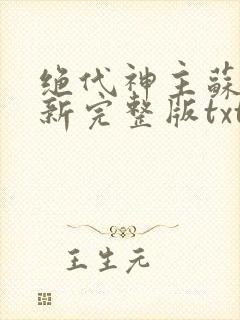 绝代神主蘇
新完整版txt
王生元